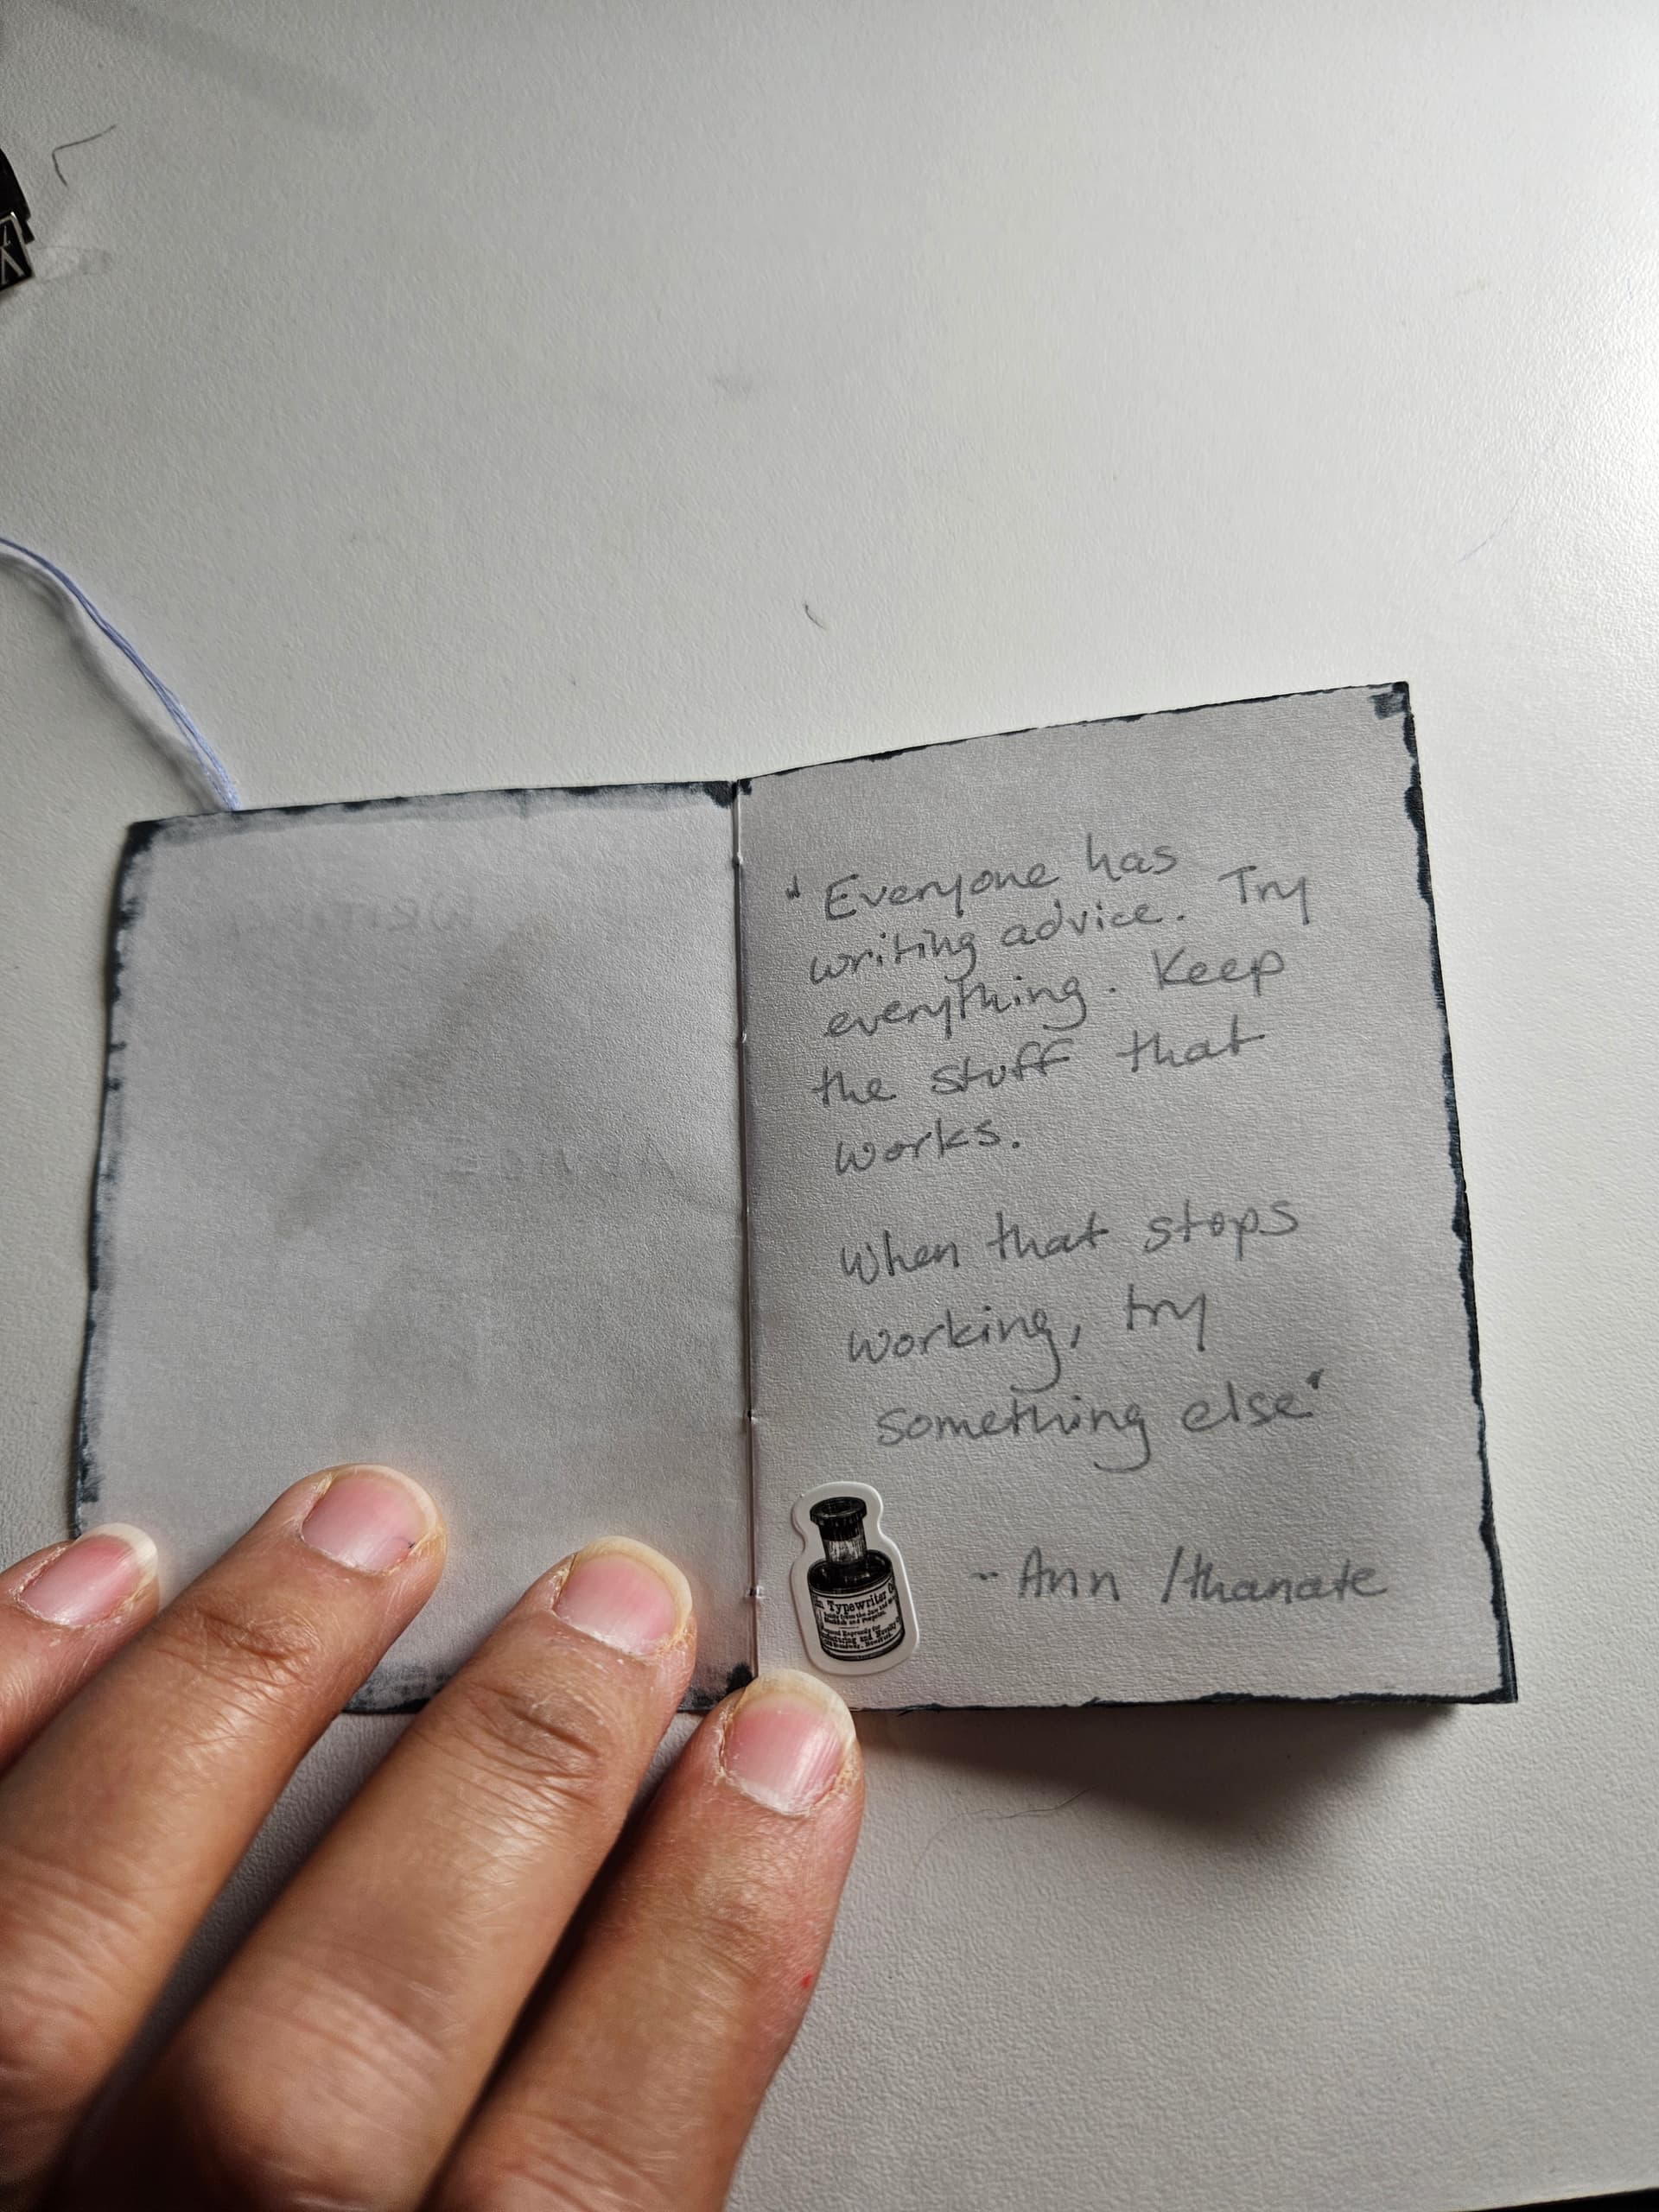 "Everyone has
writing advice. Try
everything. Keep
the stuff that
works.
When that stops
working, try
something else"
~ Ann / thanate
Typewriter